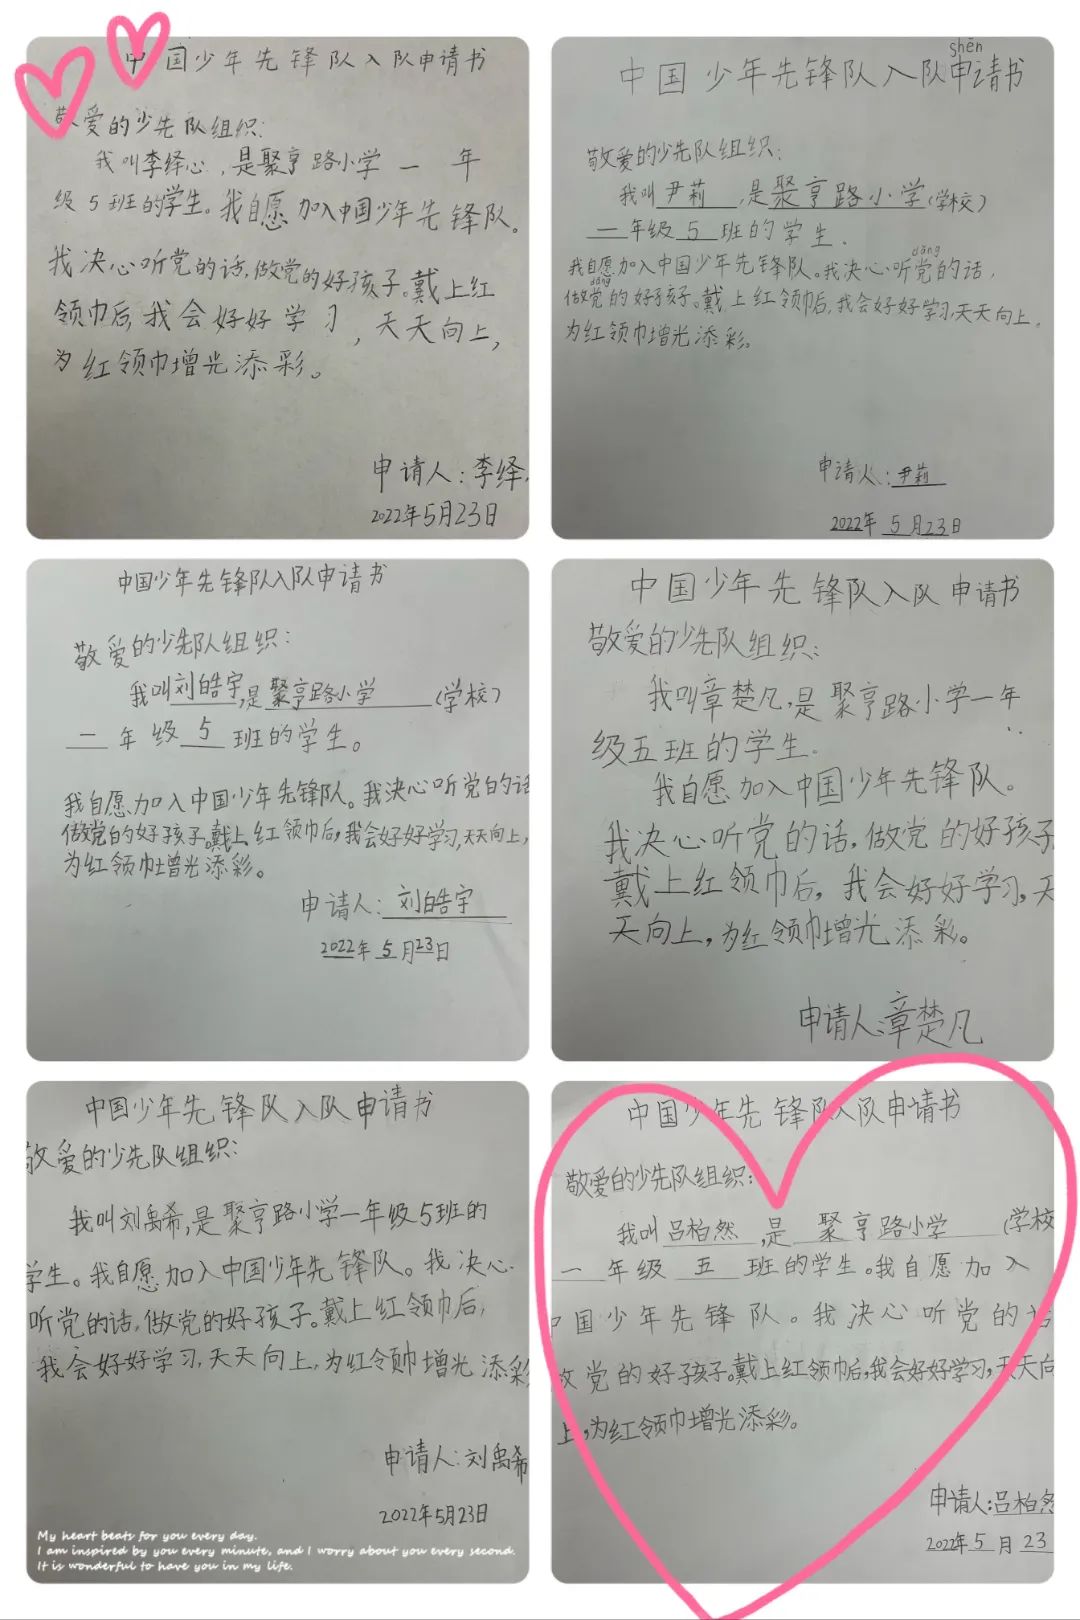 中国少年先锋队入队申请书
敬爱的少先队组织:
我叫李绎心,是聚亨路小学一年
级5班的学生。我自愿加入中国少年先锋队。
我决心听党的话,做党的好孩子。戴上红
领巾后,我会好好学习,天天向上,
为红领巾增光添彩。
申请人:李绎
2022年5月23日
shēn
中国少年先锋队入队申请书
敬爱的少先队组织:
我叫尹莉,是聚亨路小学(学校)
一年级5班的学生.
dǎng
我自愿加入中国少年先锋队。我决心听党的话,
dǎng
做党的好孩子。戴上红领巾后,我会好好学习,天天向上。
为红领巾增光添彩。
申请人:尹莉
2022年5月23日
中国少年先锋队入队申请书
敬爱的少先队组织:
我叫刘皓宇,是聚亨路小学(学校)
一年级5班的学生。
我自愿加入中国少年先锋队。我决心听党的话
做党的好孩子。戴上红领巾后,我会好好学习,天天向上,
为红领巾增光添彩。
申请人:刘皓宇
2022年5月23日
中国少年先锋队入队申请书
敬爱的少先队组织:
我叫章楚凡,是聚亨路小学一年
级五班的学生.
我自愿加入中国少年先锋队。
我决心听党的话,做党的好孩子
戴上红领巾后,我会好好学习,天
天向上,为红领巾增光添彩。
申请人:章楚凡
中国少年先锋队入队申请书
敬爱的少先队组织:
我叫刘禹希,是聚亨路小学一年级5班的
学生。我自愿加入中国少年先锋队。我决心
听党的话,做党的好孩子。戴上红领巾后,
我会好好学习,天天向上,为红领巾增光添彩
申请人:刘禹希
2022年5月23日
My heart beats for you every day.
I am inspired by you every minute, and I worry about you every second.
It is wonderful to have you in my life.
中国少年先锋队入队申请书
敬爱的少先队组织:
我叫吕柏然,是聚亨路小学(学校
一年级五班的学生。我自愿加入
中国少年先锋队。我决心听党的话
做党的好孩子。戴上红领巾后,我会好好学习,天天向
上,为红领巾增光添彩。
申请人:吕柏然
2022年5月23